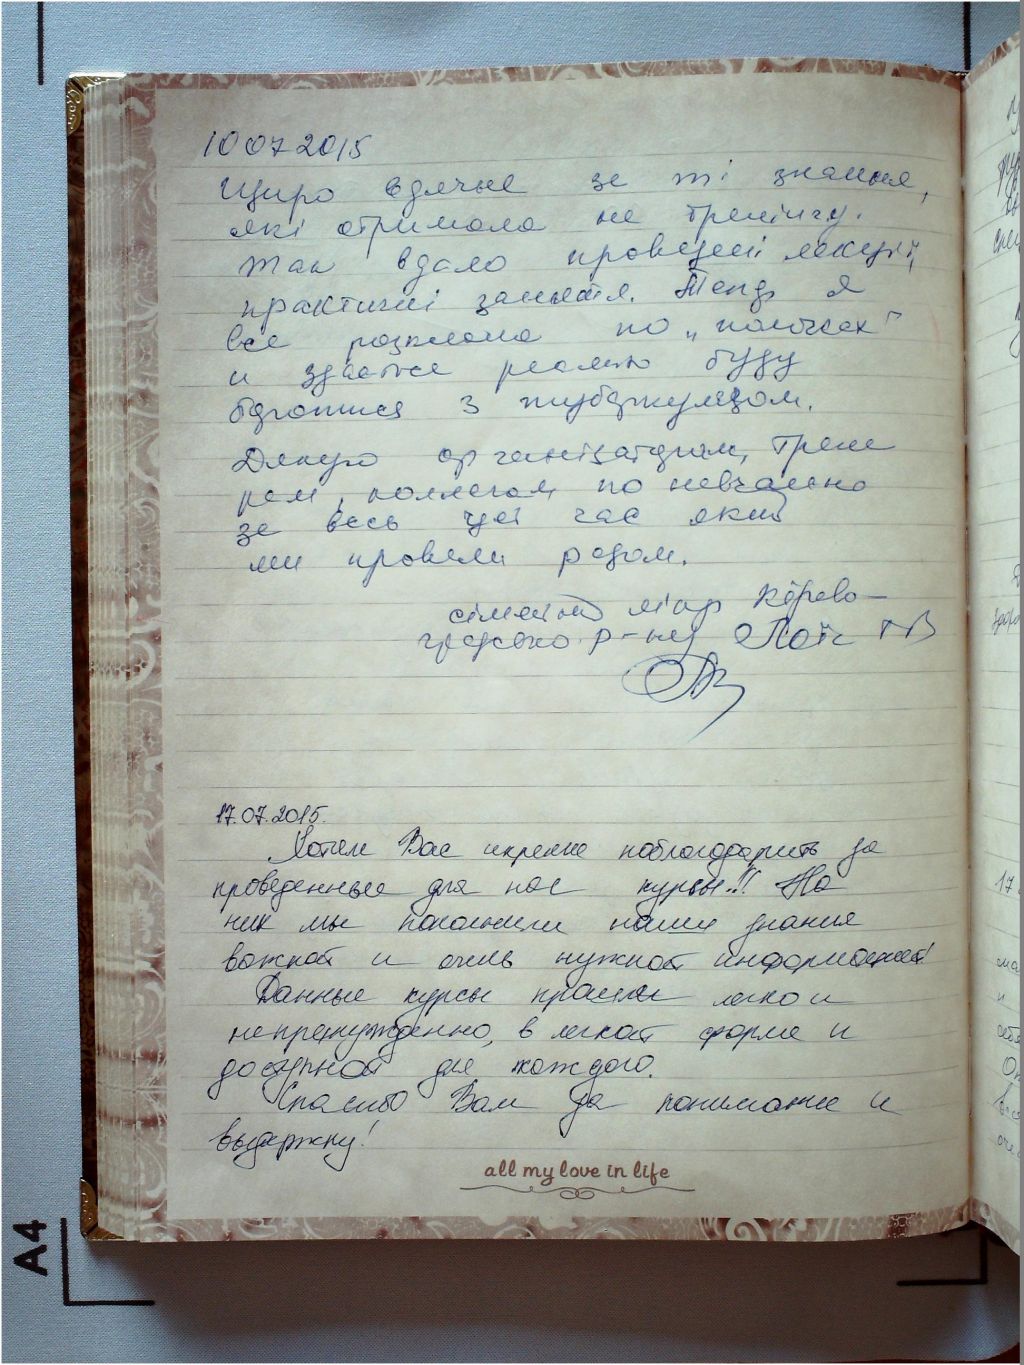 10 07 2015
Щиро вдячна за ті знання,
які отримала на тренінгу.
Так вдало проведені лекції,
практичні заняття. Тепер я
все розклала по „полочках"
и здається реально буду
боротися з туберкульозом.
Дякую організаторам, трене
рам, коллегам по навчанню
за весь цей час який
ми провели разом.
сімейний лікар Кірово-
градського р-ну
17.07.2015.
Хотим Вас искренне поблагодарить за
проведенные для нас курсы!!! На
них мы пополнили наши знания
важной и очень нужной информацией!
Данные курсы прошли легко и
непренужденно, в легкой форме и
доступной для каждого.
Спасибо Вам за понимание и
выдержку!
all my love in life
A4